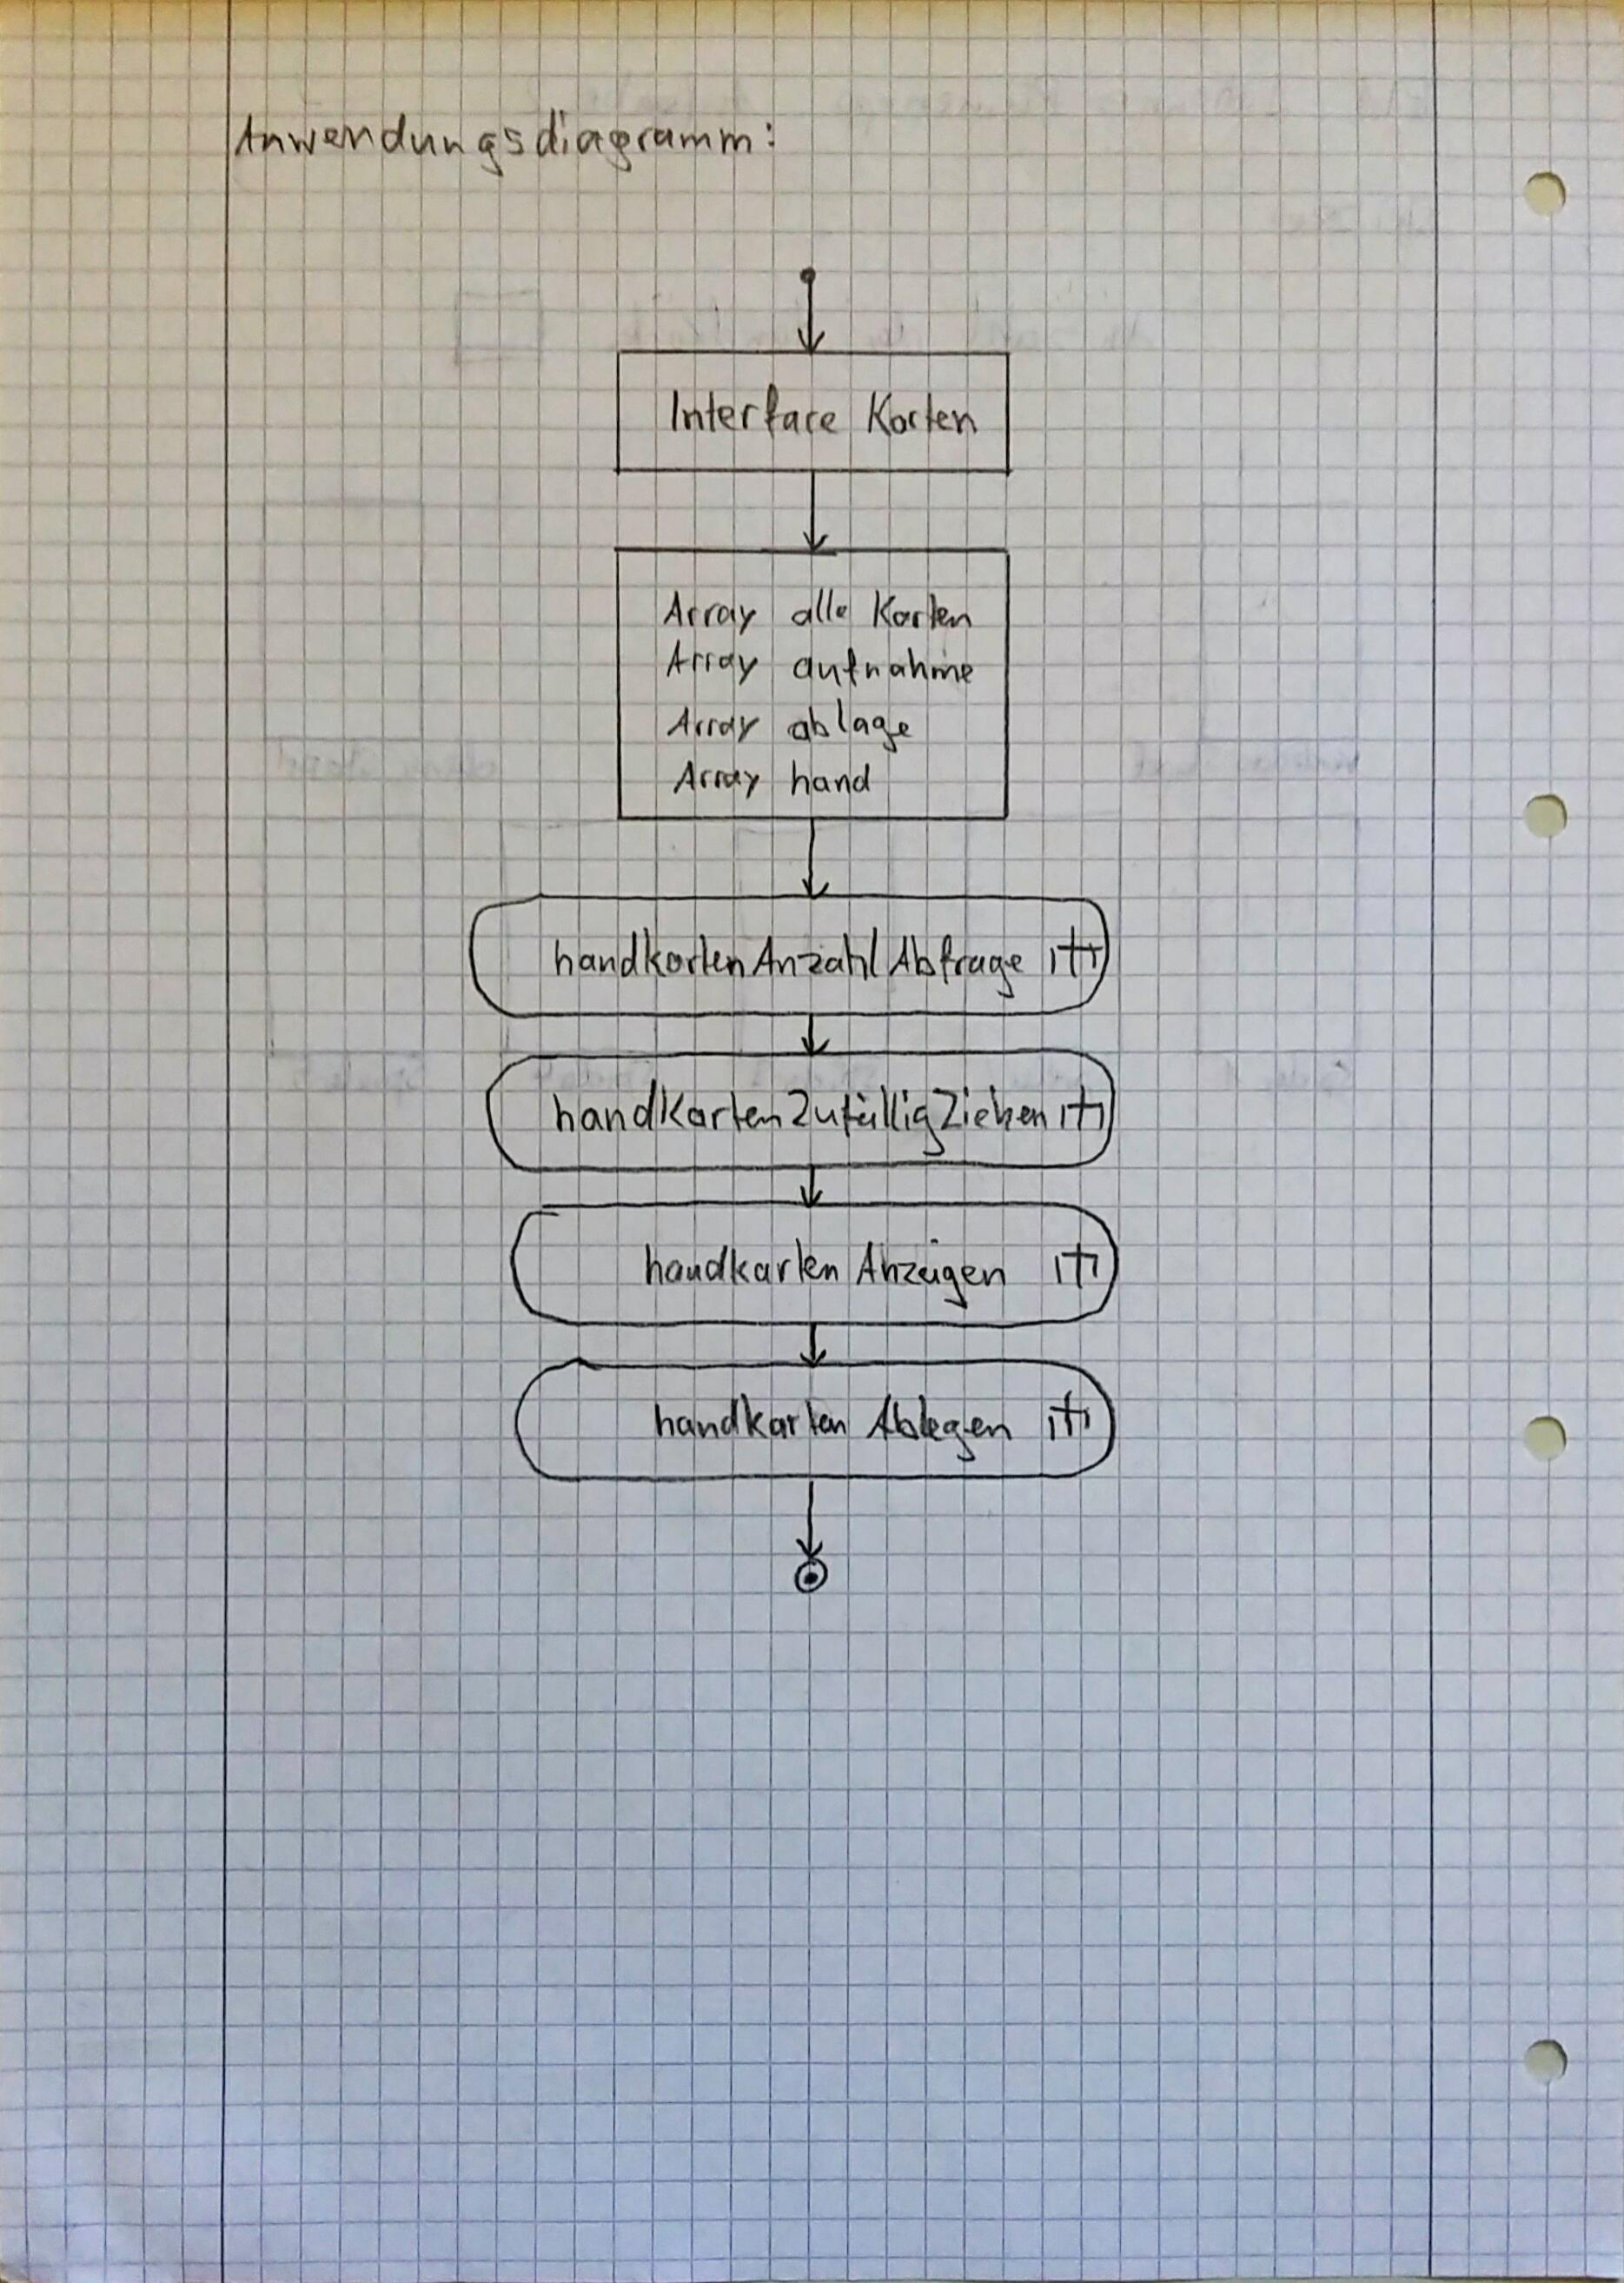 Anwendungsdiagramm:
Interface Karten
Array alle Karten
Array aufnahme
Array ablage
Array hand
handkartenAnzahlAbfrage
handKartenZufälligZiehen
handkartenAnzeigen
handkartenAblegen